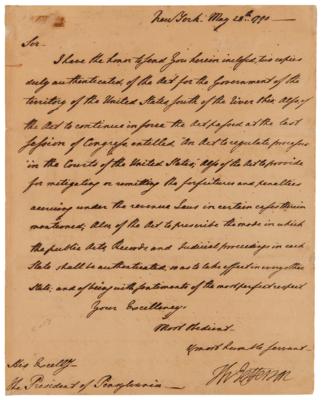 New York May 28th. 1790
Sir
I have the honor to send You herein inclosed, two copies
duly authenticated, of the Act for the Government of the
territory of the United States south of the River Ohio, also of
the Act to continue in force the Act passed at the last
session of Congress entitled "An Act to regulate processes
in the Courts of the United States; Also of the Act to provide
for mitigating or remitting the forfeitures and penalties
accruing under the revenue Laws in certain cases therein
mentioned; Also of the Act to prescribe the mode in which
the public Acts, Records, and Judicial proceedings in each
State shall be authenticated so as to take effect in every other
State; and of being with sentiments of the most perfect respect
Your Excellency's
Most Obedient
& most humble servant.
Th: Jefferson
His Excelly.
The President of Pensylvania